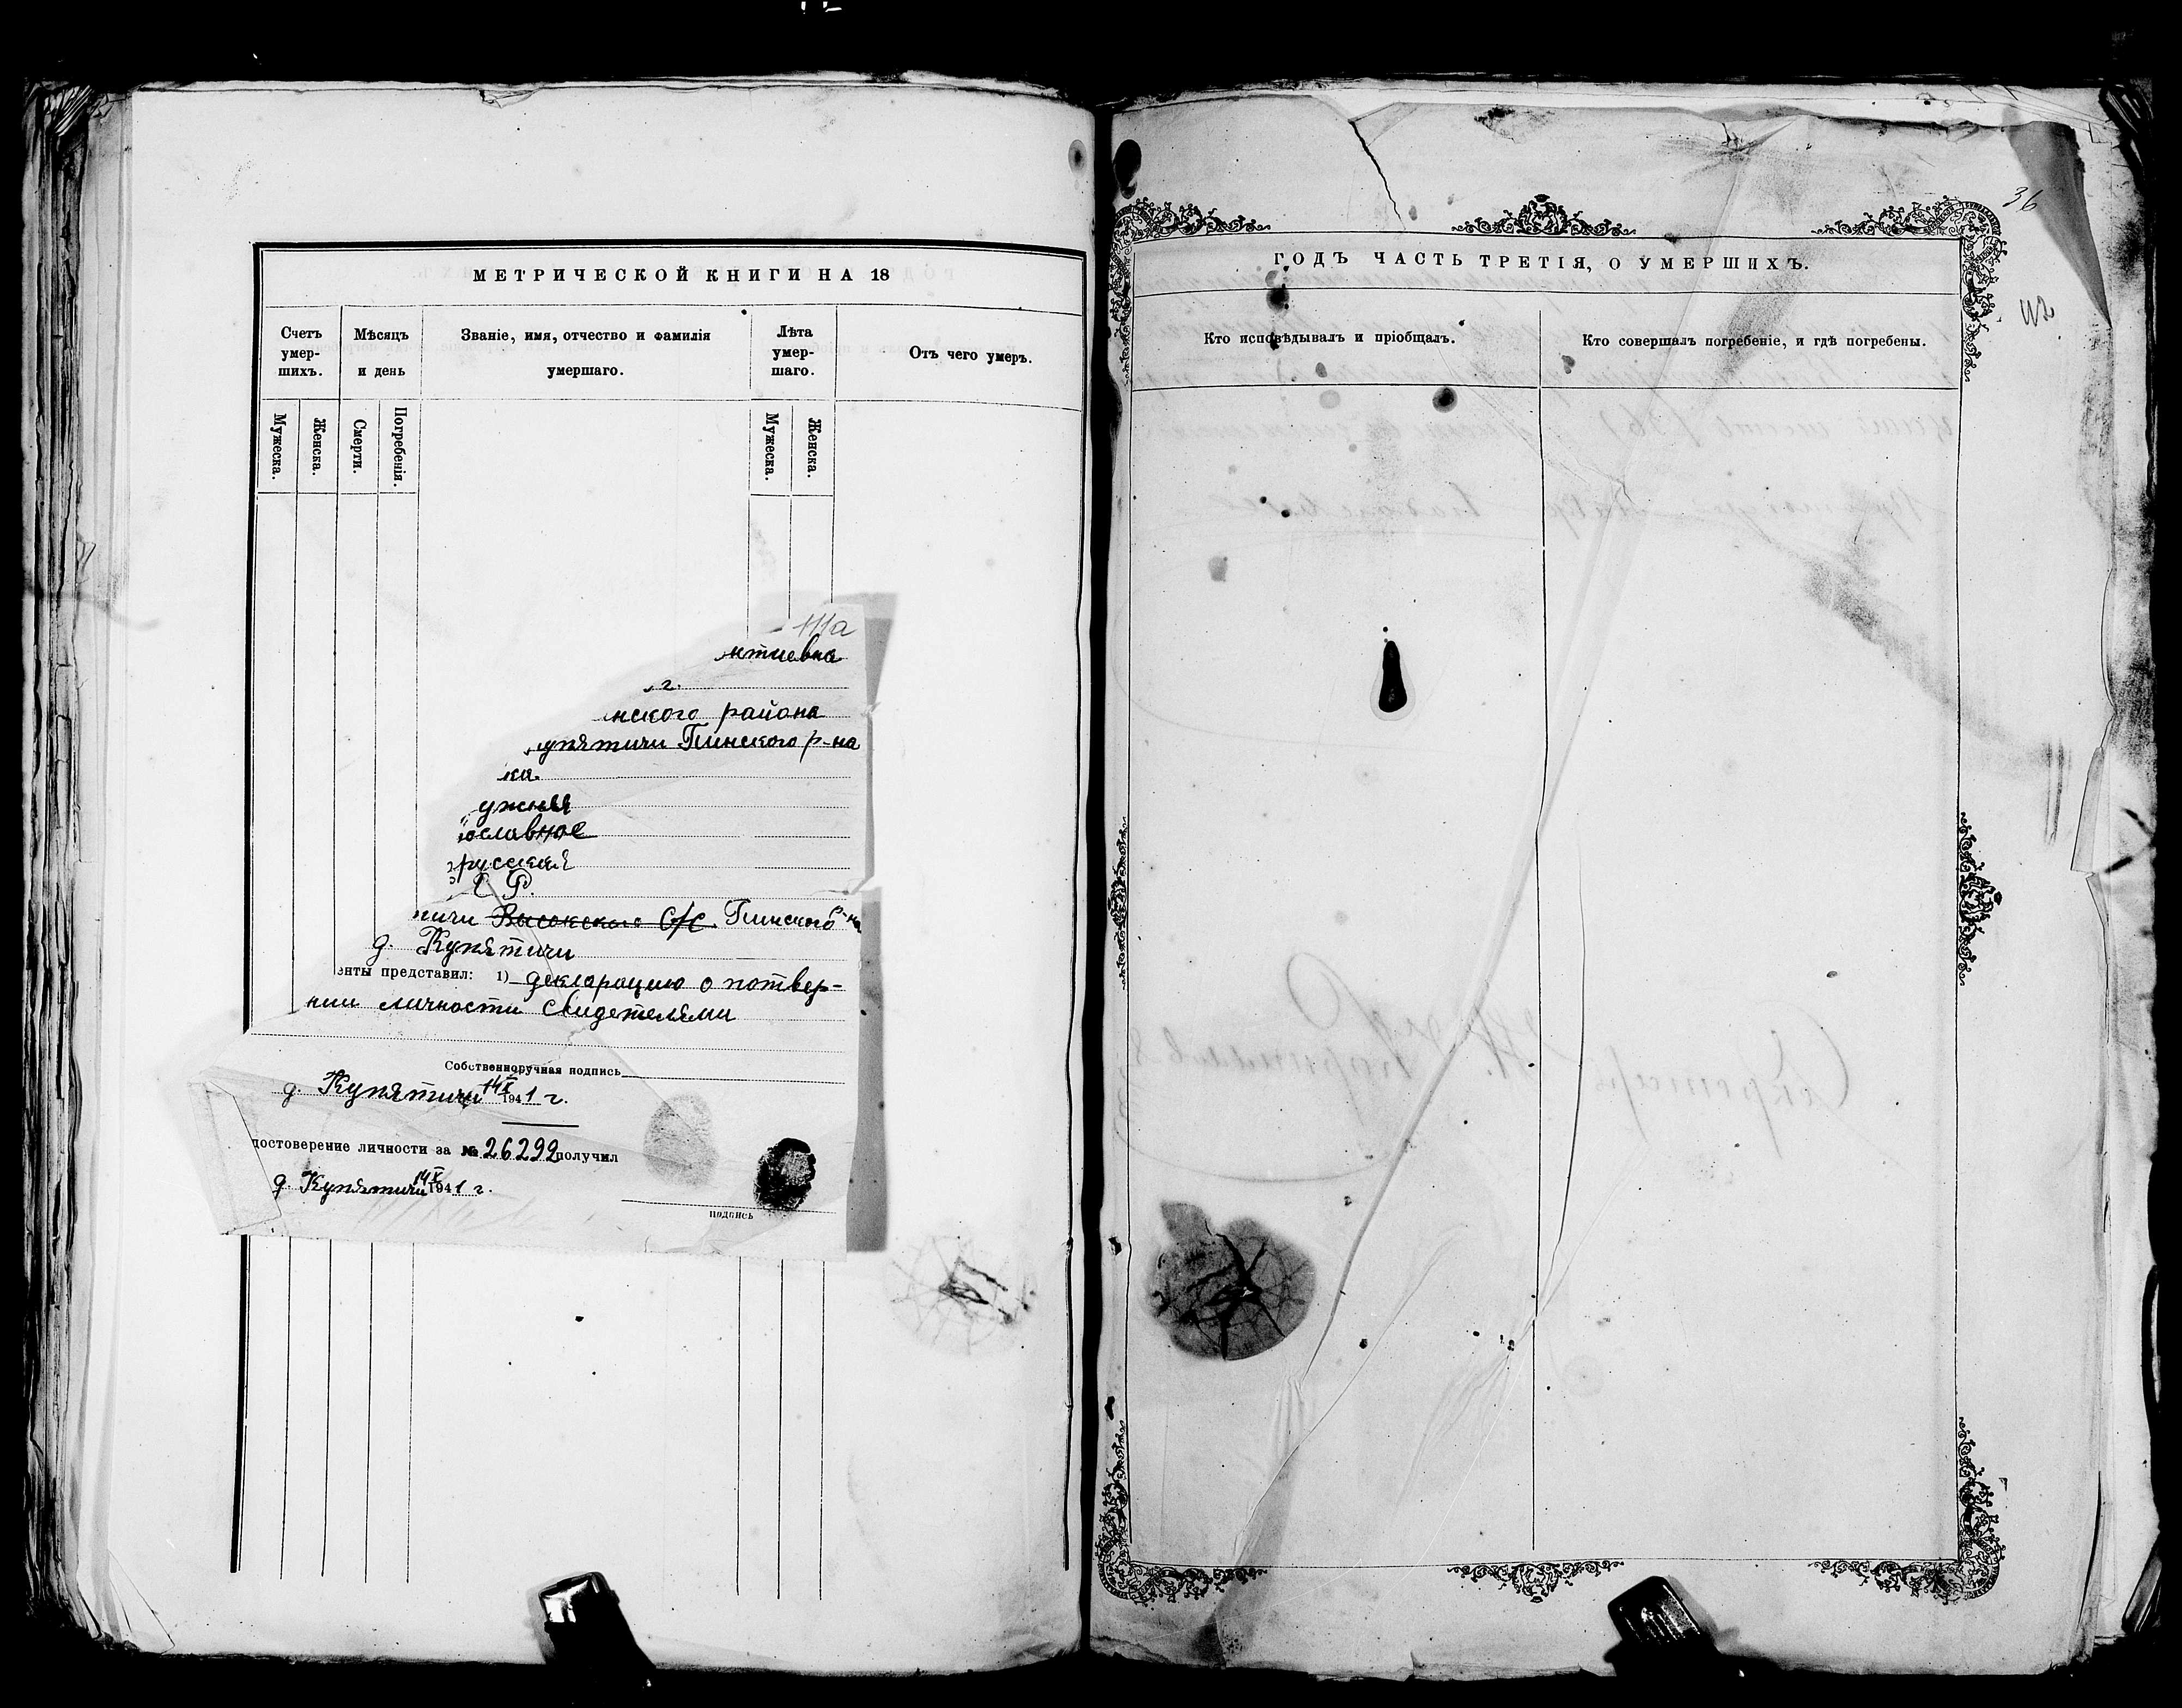 МЕТРИЧЕСКОЙ КНИГИ НА 18
Счетъ умер-шихъ.
Мѣсяцъ и день
Званіе, имя, отчество и фамилія умершаго.
Лѣта умер-шаго.
Отъ чего умеръ.
Мужеска.
Женска.
Смерти.
Погребенія.
Мужеска.
Женска.
111а
нтиевна
г.
нского района
упятичи Пинского р-на
ка
ужняя
ославное
русская
С Р.
тичи Высокского С/С Пинского р-на
д. Купятичи
енты представил: 1) декларацию о потвер-
нии личности свидетелями
Собственноручная подпись
д. Купятичи 14 X 1941 г.
достоверение личности за № 26292 получил
д. Купятичи 14 X 1941 г.
подпись
36
ГОДЪ ЧАСТЬ ТРЕТІЯ, О УМЕРШИХЪ.
Кто исповѣдывалъ и пріобщалъ.
Кто совершалъ погребеніе, и гдѣ погребены.